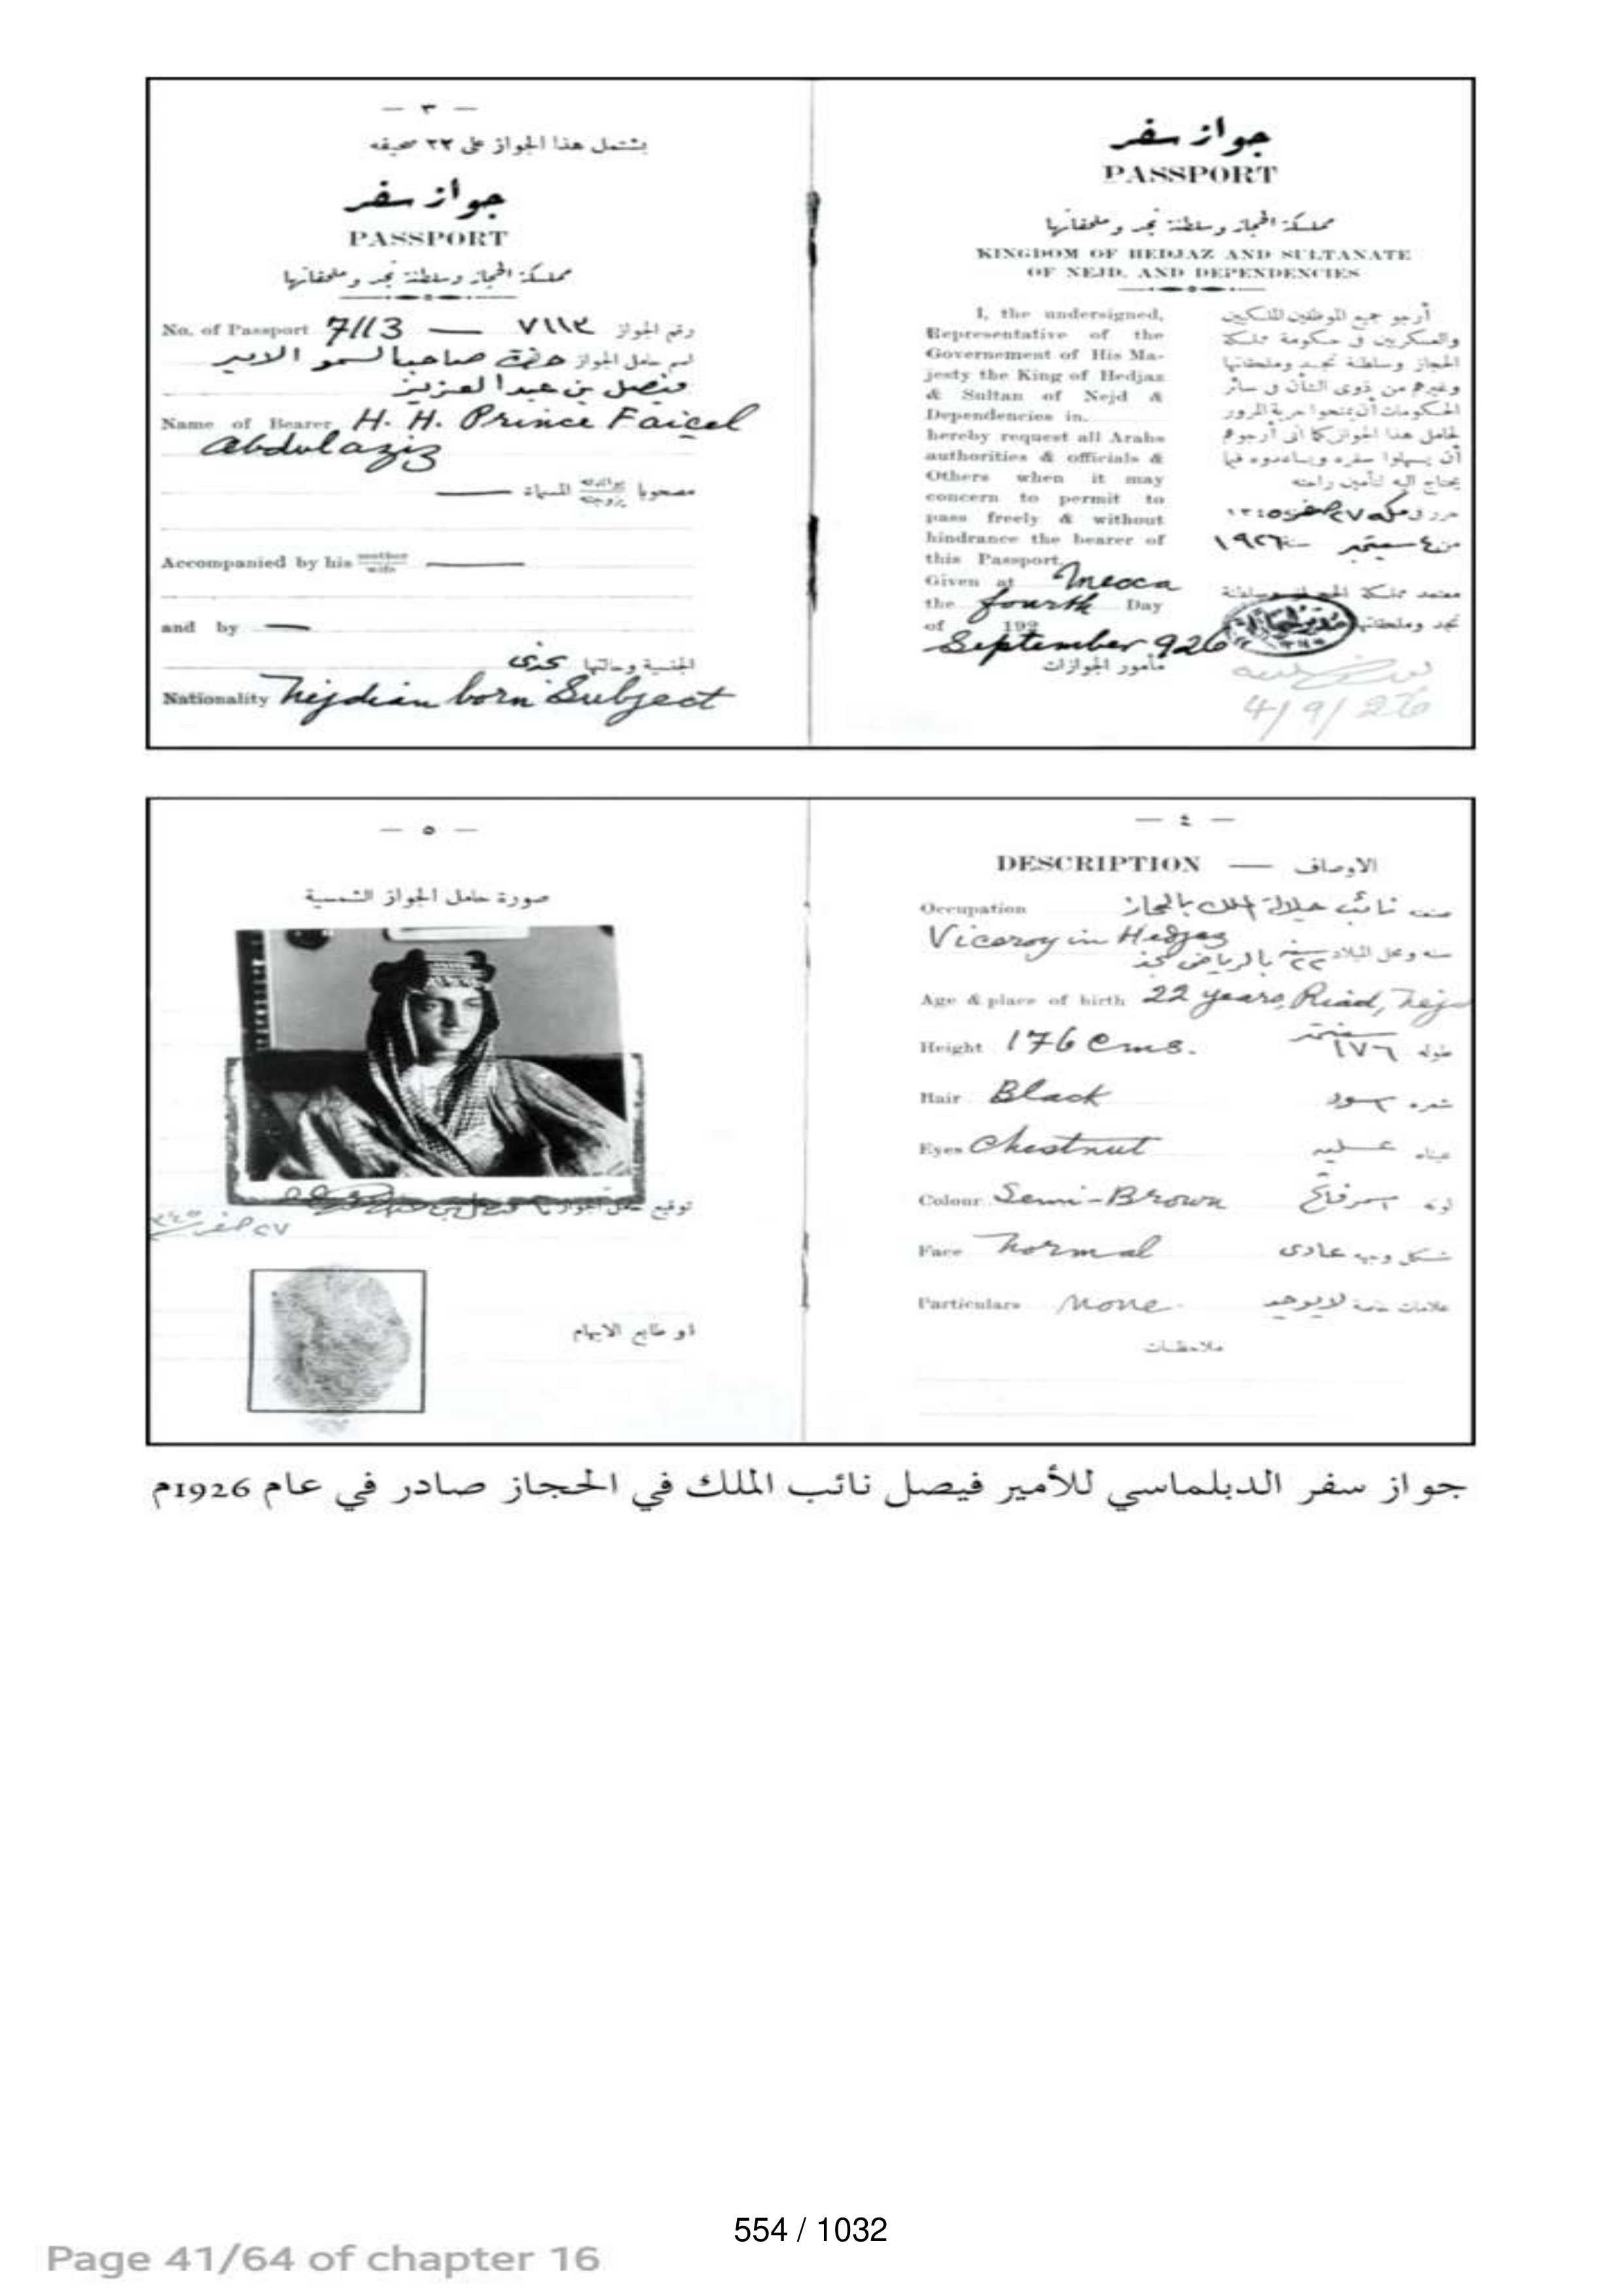 — ٣ —
يشتمل هذا الجواز على ٢٢ صحيفه
جواز سفر
PASSPORT
مملكة الحجاز وسلطنة نجد وملحقاتها
No. of Passport 7113 — ٧١١٣ رقم الجواز
اسم حامل الجواز حضرة صاحب السمو الامير
فيصل بن عبد العزيز
Name of Bearer H. H. Prince Faicel
Abdulaziz
مصحوبا بوالدته بزوجته المسماة —
Accompanied by his mother wife —
and by —
الجنسية وحالتها نجدى
Nationality Nejdian born Subject
جواز سفر
PASSPORT
مملكة الحجاز وسلطنة نجد وملحقاتها
KINGDOM OF HEDJAZ AND SULTANATE
OF NEJD. AND DEPENDENCIES
I, the undersigned,
Representative of the
Governement of His Ma-
jesty the King of Hedjaz
& Sultan of Nejd &
Dependencies in.
hereby request all Arabs
authorities & officials &
Others when it may
concern to permit to
pass freely & without
hindrance the bearer of
this Passport.
Given at Mecca
the fourth Day
of 192
September 926
أرجو جميع الموظفين الملكيين
والعسكريين في حكومة مملكة
الحجاز وسلطنة نجد وملحقاتها
وغيرهم من ذوى الشأن في سائر
الحكومات أن يمنحوا حرية المرور
لحامل هذا الجواز كما أنى أرجوهم
أن يسهلوا سفره ويساعدوه فيما
يحتاج اليه لتأمين راحته
حرر في مكة ٢٧ صفر ١٣٤٥
من ٤ سبتمبر سنة ١٩٢٦
معتمد مملكة الحجاز وسلطنة
نجد وملحقاتها
مأمور الجوازات
4/9/26
— ٥ —
صورة حامل الجواز الشمسية
توقيع حامل الجواز
٢٧ صفر ٣٤٥
او طابع الابهام
— ٤ —
DESCRIPTION — الاوصاف
Occupation نائب جلالة الملك بالحجاز
Viceroy in Hedjaz
سنه ومحل الميلاد ٢٢ سنة بالرياض نجد
Age & place of birth 22 years, Riad, Nejd
Height 176 Cms. طوله ١٧٦
Hair Black شعره اسود
Eyes Chestnut عيناه عسليه
Colour Semi-Brown لونه اسمر فاتح
Face Normal شكل وجهه عادى
Particulars None. لا يوجد
ملاحظات
جواز سفر الدبلماسي للأمير فيصل نائب الملك في الحجاز صادر في عام 1926م
554 / 1032
Page 41/64 of chapter 16